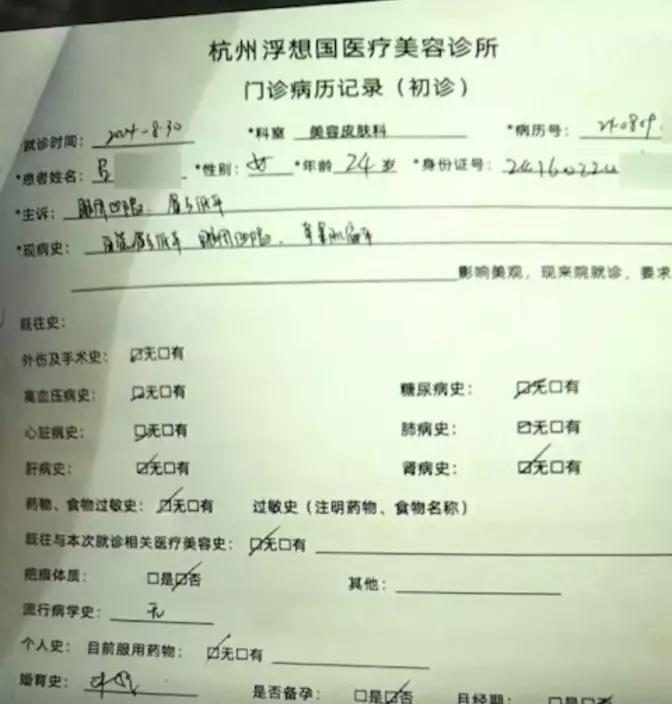 杭州浮想国医疗美容诊所
门诊病历记录（初诊）
就诊时间： 2024-8-30 *科室 美容皮肤科 *病历号： 240809
*患者姓名： *性别： 女 *年龄 24 岁 *身份证号：
*主诉： 眼周凹陷、眉弓低平
*现病史： 自觉眉弓低平 眼周凹陷、
影响美观，现来院就诊，要求
既往史：
外伤及手术史： ☑无□有
高血压病史： ☑无□有 糖尿病史： ☑无□有
心脏病史： ☑无□有 肺病史： ☑无□有
肝病史： ☑无□有 肾病史： ☑无□有
药物、食物过敏史： ☑无□有 过敏史（注明药物、食物名称）
既往与本次就诊相关医疗美容史： ☑无□有
疤痕体质： □是☑否 其他：
流行病学史： 无
个人史： 目前服用药物： ☑无□有
婚育史： 是否备孕： □是☑否 月经期： □是☑否